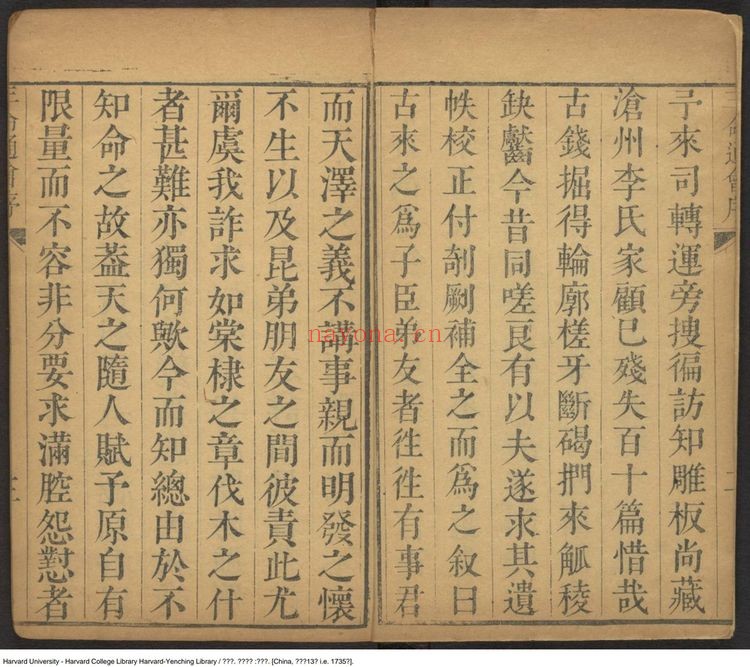 命通會序
予來司轉運旁搜徧訪知雕板尚藏
滄州李氏家顧已殘失百十篇惜哉
古錢掘得輪廓槎牙斷碣捫來觚稜
缺齾今昔同嗟良有以夫遂求其遺
帙校正付剞劂補全之而爲之叙曰
古來之爲子臣弟友者徃徃有事君
而天澤之義不講事親而明發之懷
不生以及昆弟朋友之間彼責此尤
爾虞我詐求如棠棣之章伐木之什
者甚難亦獨何歟今而知總由於不
知命之故葢天之隨人賦予原自有
限量而不容非分要求滿腔怨懟者
命通會序
nayona.cn
Harvard University - Harvard College Library Harvard-Yenching Library / ???. ???? :???. [China, ???13? i.e. 1735?].